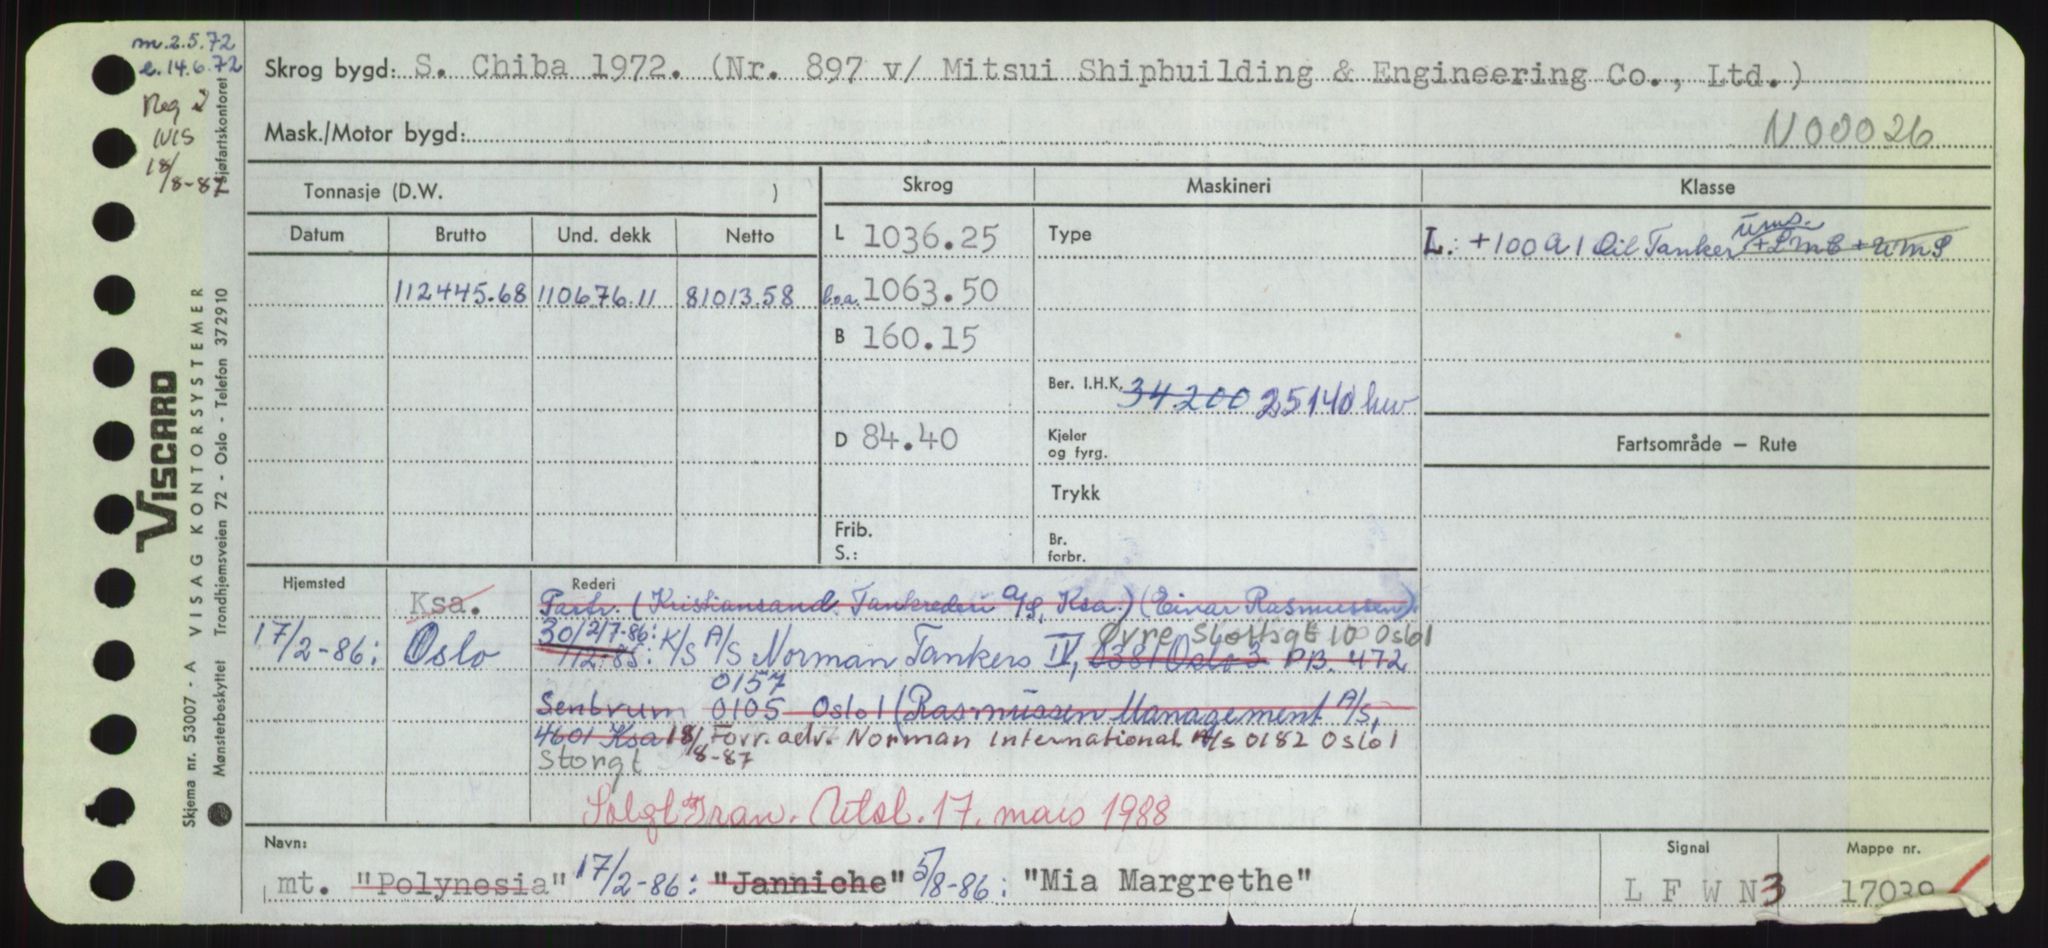 m.2.5.72
e.14.6.72
Reg i
NIS
18/8-87
Skrog bygd: S. Chiba 1972. (Nr. 897 v/ Mitsui Shipbuilding & Engineering Co., Ltd.)
Mask./Motor bygd:
N00026
Tonnasje (D.W. )
Skrog
Maskineri
Klasse
Datum Brutto Und. dekk Netto
L 1036.25
Type
L: +100 A 1 Oil Tanker +LMC + UMS
ums.
112445.68 110676.11 81013.58
b.o.a. 1063.50
B 160.15
Ber. I.H.K. 34200 25140 kw
D 84.40
Kjeler
og fyrg.
Fartsområde – Rute
Trykk
Frib.
S.:
Br.
forbr.
Hjemsted
Rederi
Ksa.
Partr. (Kristiansand Tankrederi A/S, Ksa.) (Einar Rasmussen)
17/2-86: Oslo
30/12/7-86: Øvre Slottsgt 10 Oslo 1
1/12-85: K/S A/S Norman Tankers IV, 0381 Oslo 3 P.B. 472
0157
Sentrum 0105 Oslo 1 (Rasmussen Management A/S,
4601 Ksa 18/8-87 Forr. adv. Norman International A/S 0182 Oslo 1
Storgt
Solgt Iran. Utsl. 17. mars 1988
Navn:
mt. "Polynesia" 17/2-86: "Janniche" 5/8-86: "Mia Margrethe"
Signal
L F W N 3
Mappe nr.
17039
VISCARD
Skjema nr. 53007 - A VISAG KONTORSYSTEMER
Mønsterbeskyttet Trondhjemsveien 72 - Oslo - Telefon 372910
sjøfartskontoret